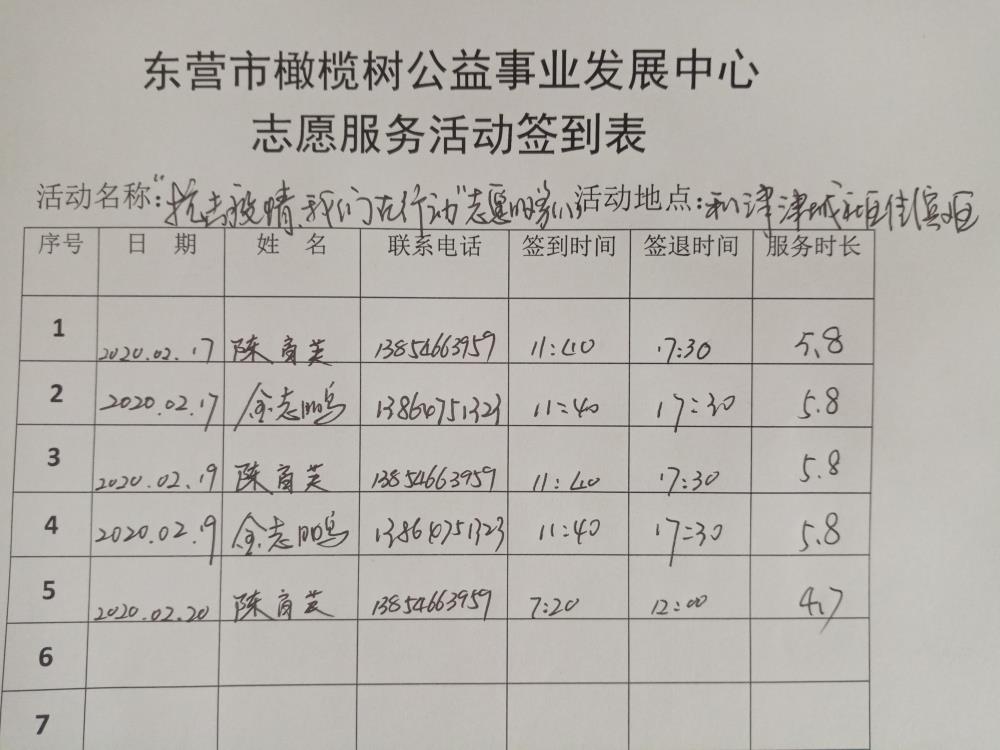 东营市橄榄树公益事业发展中心
志愿服务活动签到表
活动名称：“抗击疫情，我们在行动”志愿服务 活动地点：利津津城社区佳滨小区
序号 日 期 姓 名 联系电话 签到时间 签退时间 服务时长
1 2020.02.17 陈育芙 13854663959 11:40 17:30 5.8
2 2020.02.17 金志鹏 13864751323 11:40 17:30 5.8
3 2020.02.19 陈育芙 13854663959 11:40 17:30 5.8
4 2020.02.19 金志鹏 13864751323 11:40 17:30 5.8
5 2020.02.20 陈育芙 13854663959 7:20 12:00 4.7
6
7